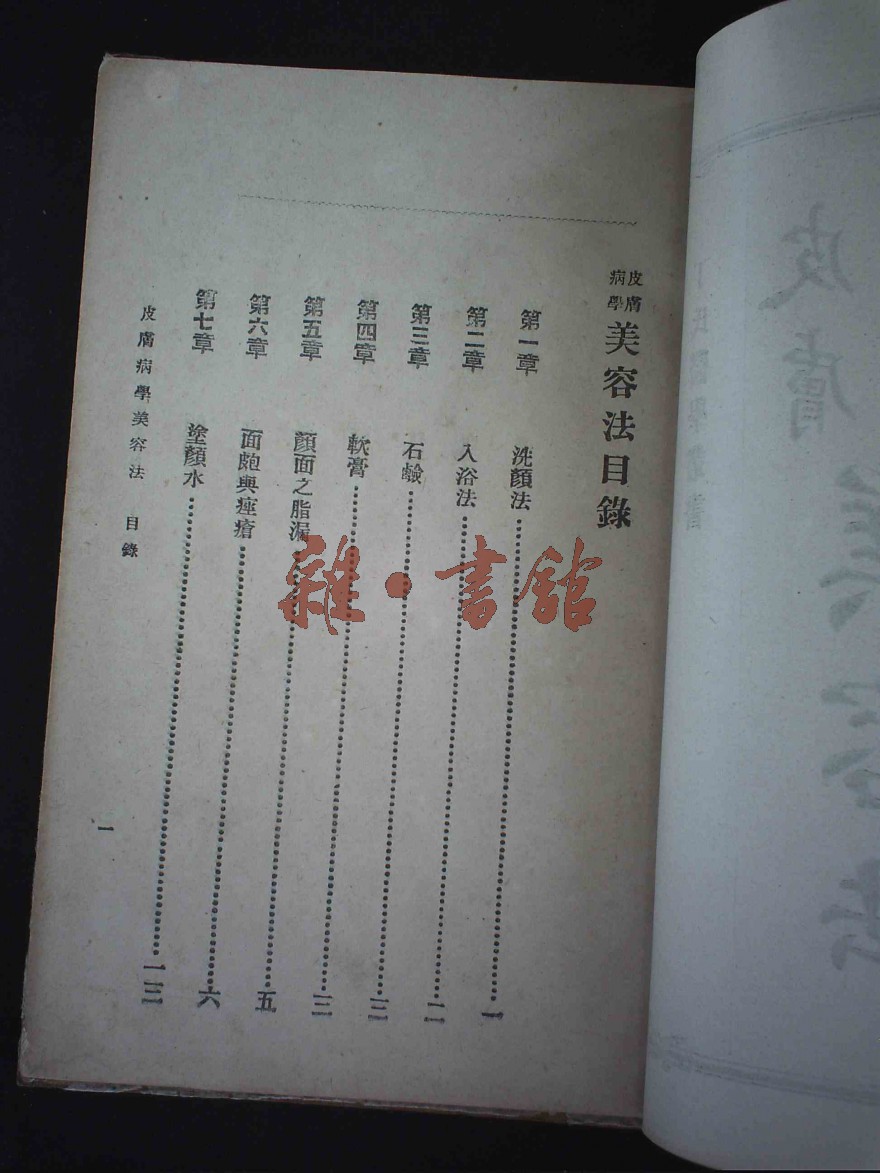 皮膚病學 美容法目錄
第一章 洗顏法……一
第二章 入浴法……二
第三章 石鹼……三
第四章 軟膏……三
第五章 顏面之脂漏……五
第六章 面皰與痤瘡……六
第七章 塗顏水……一三
皮膚病學美容法 目錄
一
雜·書館